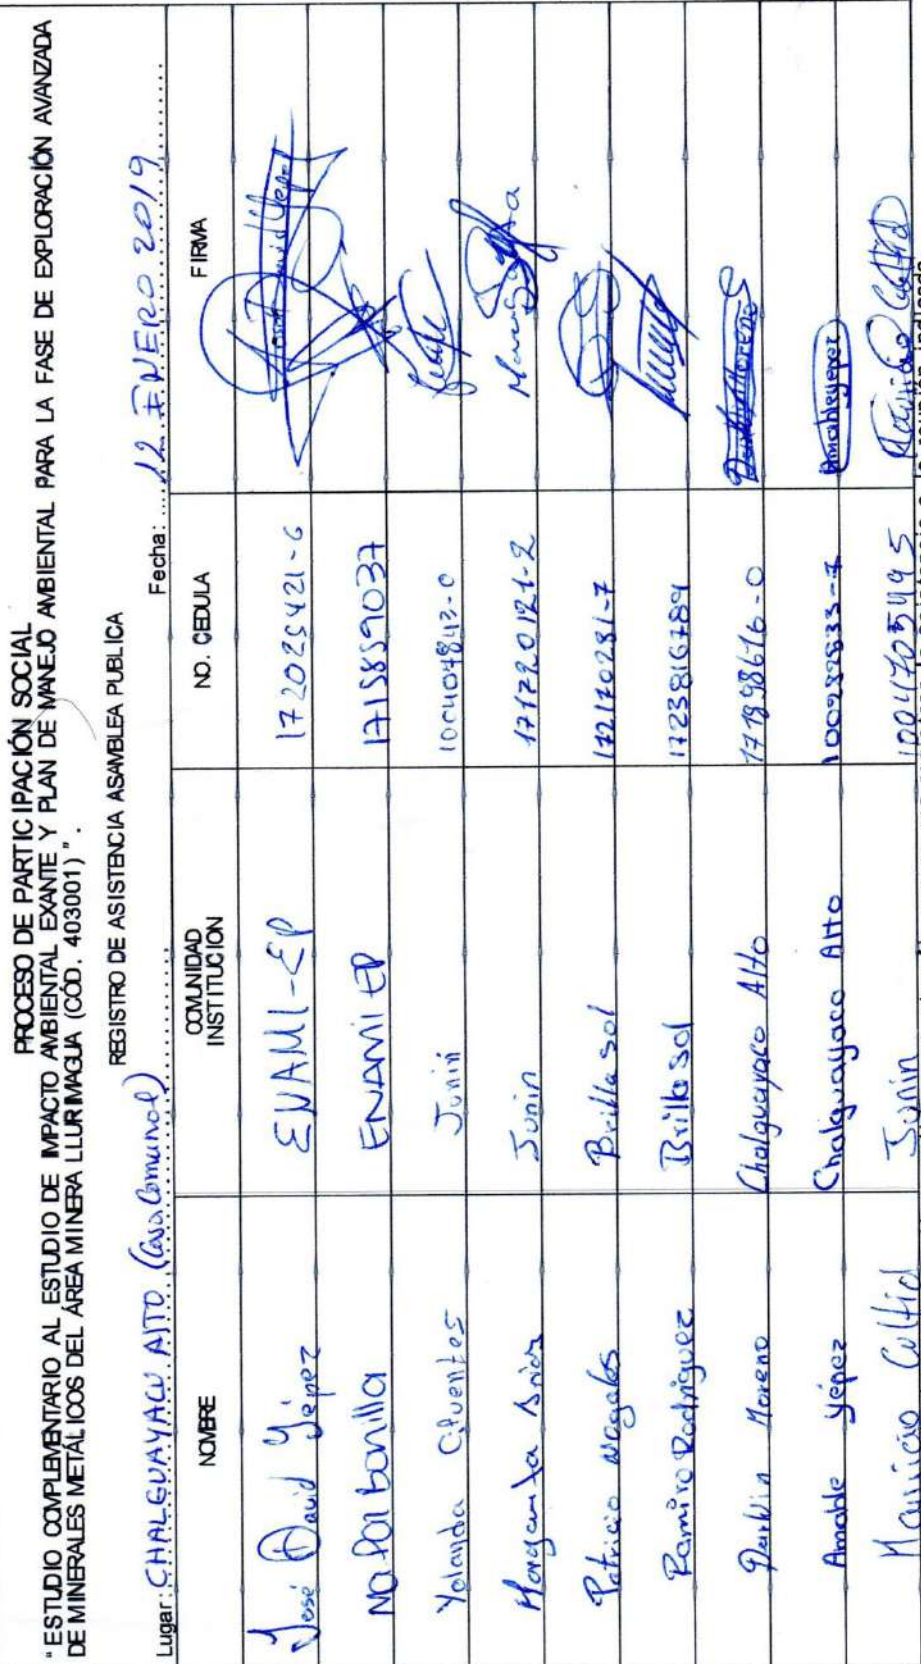 PROCESO DE PARTICIPACIÓN SOCIAL
"ESTUDIO COMPLEMENTARIO AL ESTUDIO DE IMPACTO AMBIENTAL EXANTE Y PLAN DE MANEJO AMBIENTAL PARA LA FASE DE EXPLORACIÓN AVANZADA
DE MINERALES METÁLICOS DEL ÁREA MINERA LLURIMAGUA (CÓD. 403001)".
REGISTRO DE ASISTENCIA ASAMBLEA PUBLICA
Lugar: CHALGUAYACU ALTO (Casa Comunal) Fecha: 12 ENERO 2019
NOMBRE COMUNIDAD INSTITUCION NO. CEDULA FIRMA
José David Yépez ENAMI-EP 172025421-6 José David Yépez
Ma Paz bonilla ENAMI EP 1715859037
Yolanda Cifuentes Junin 100404843-0
Margarita Junin 171720121-2
Patricio Nogales Brilla sol 172170281-7
Ramiro Rodriguez Brilla sol 1723816789
Darwin Moreno Chalguayaco Alto 171898676-0 Darwin Moreno
Amable Yépez Chalguayaco Alto 100282833-7 Amable yepez
Mauricio Cultid Junin 1004705495 Mauricio Cultid
la reunión indicada